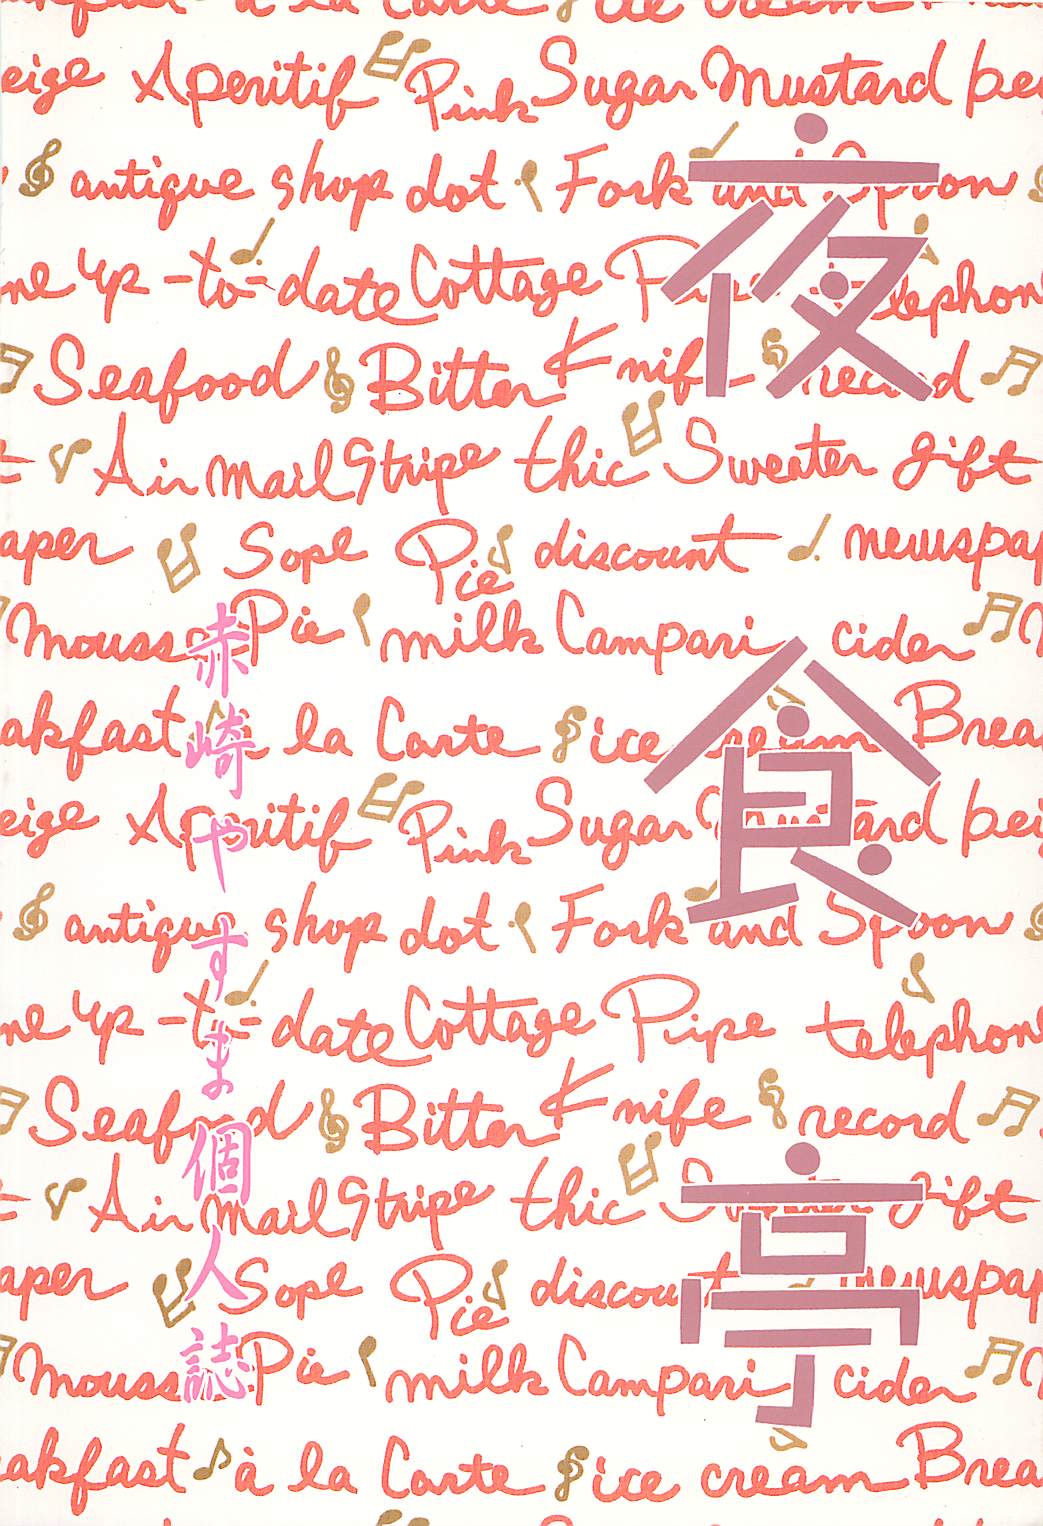 akfast à la Carte ice cream Brea
eige Aperitif Pink Sugar Mustard bei
antique shop dot Fork and Spoon
ne up-to-date Cottage Pipe telephon
Seafood Bitter Knife record
Air mail Stripe thic Sweater gift
aper Sope Pie discount newspap
Mousse Pie milk Campari cider
akfast à la Carte ice cream Brea
eige Aperitif Pink Sugar Mustard bei
antique shop dot Fork and Spoon
ne up-to-date Cottage Pipe telephon
Seafood Bitter Knife record
Air mail Stripe thic Sweater gift
aper Sope Pie discount newspap
Mousse Pie milk Campari cider
akfast à la Carte ice cream Brea
夜食亭
赤崎やすま個人誌